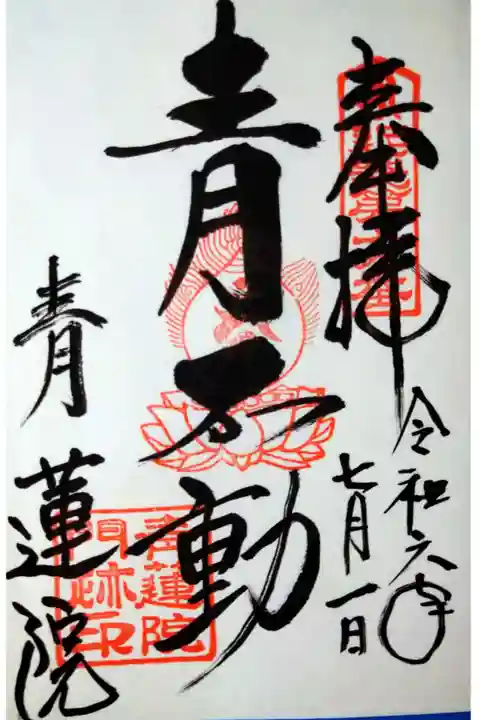 奉拝
令和六年
七月一日
青不動
青蓮院
青蓮院
門跡
印